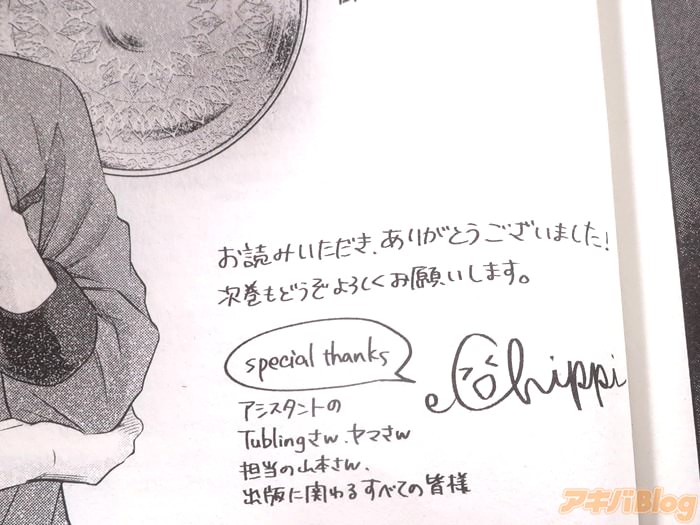 お読みいただき、ありがとうございました!
次巻もどうぞよろしくお願いします。
special thanks
Chippi
アシスタントの
Tublingさん、ヤマさん
担当の山本さん、
出版に関わるすべての皆様
アキバBlog